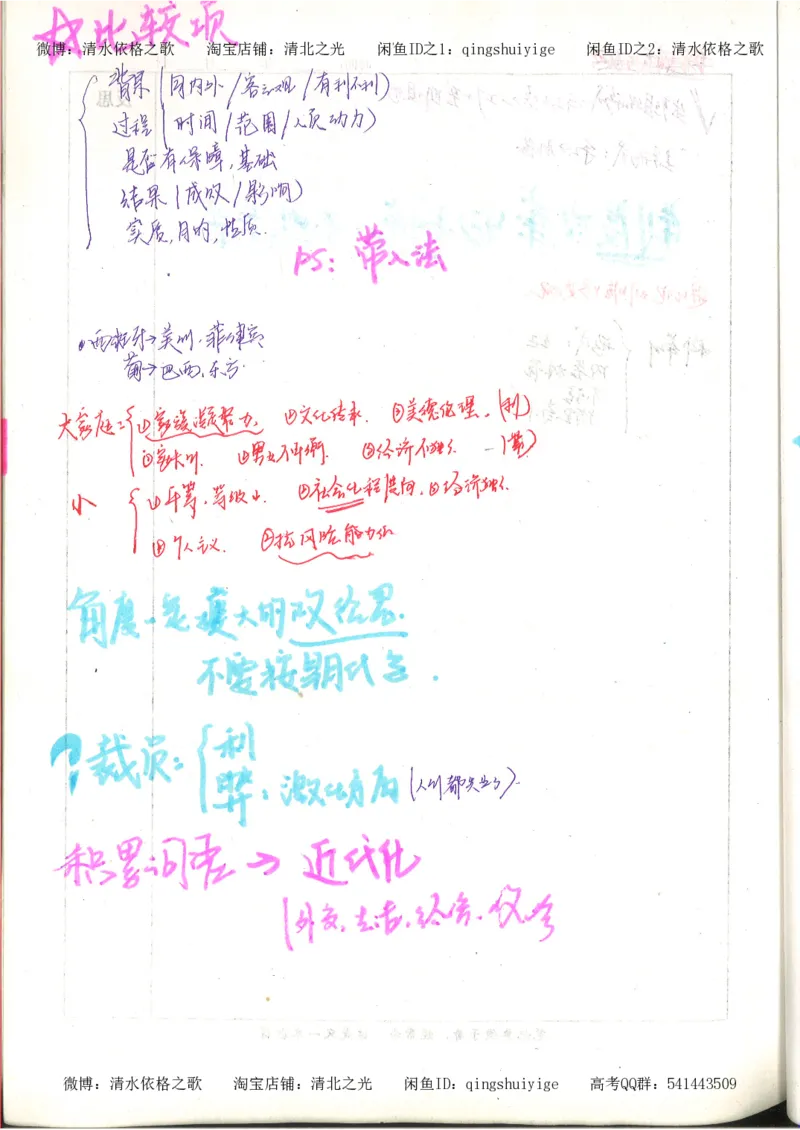 找比较项
微博：清水依格之歌 淘宝店铺：清北之光 闲鱼ID之1：qingshuiyige 闲鱼ID之2：清水依格之歌
背景(国内外/客主观/有利不利)
过程(时间/范围/人员动力)
是否有保障,基础
结果(成败/影响)
实质,目的,性质.
PS：带入法
西班牙→美洲.菲律宾
葡→巴西.东方.
大家庭：①家族凝聚力. ②文化传承. ③美德伦理.(利)
②男女不平等. ③经济不独. (弊)
小 ①平等. ②社会化程度高.③经济独.
④个人议. ⑤抗风险能力低
角度一定
不要按朝代写.
？裁员：利
弊：激化矛盾(人们都失业了).
积累词语→近代化
(外交.生活.经营.仪式
微博：清水依格之歌 淘宝店铺：清北之光 闲鱼ID：qingshuiyige 高考QQ群：541443509